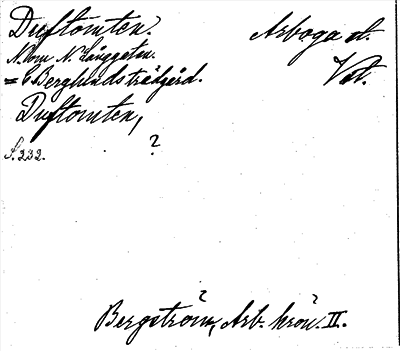 Duftomten. Arboga st.
N. om N. Långgatan. Vstm.
= C. Berglunds trädgård.
Duftomten,
S. 232. ?
Bergström, Arb. krön. II.